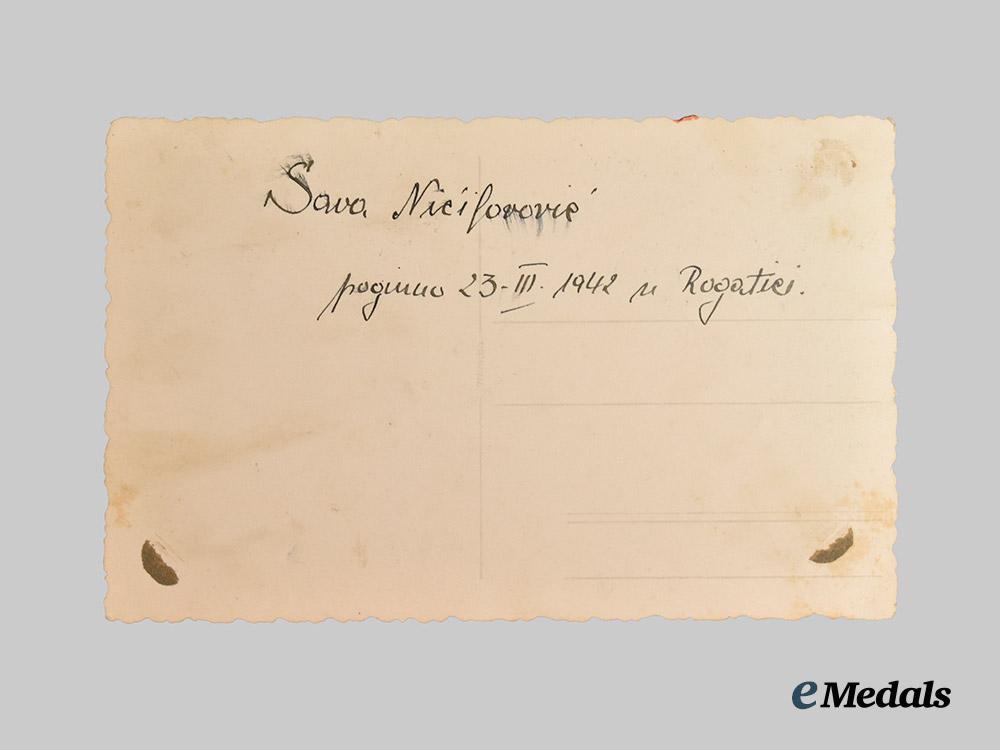 Sava Nićiforović
poginuo 23-III. 1942 u Rogatici.
eMedals